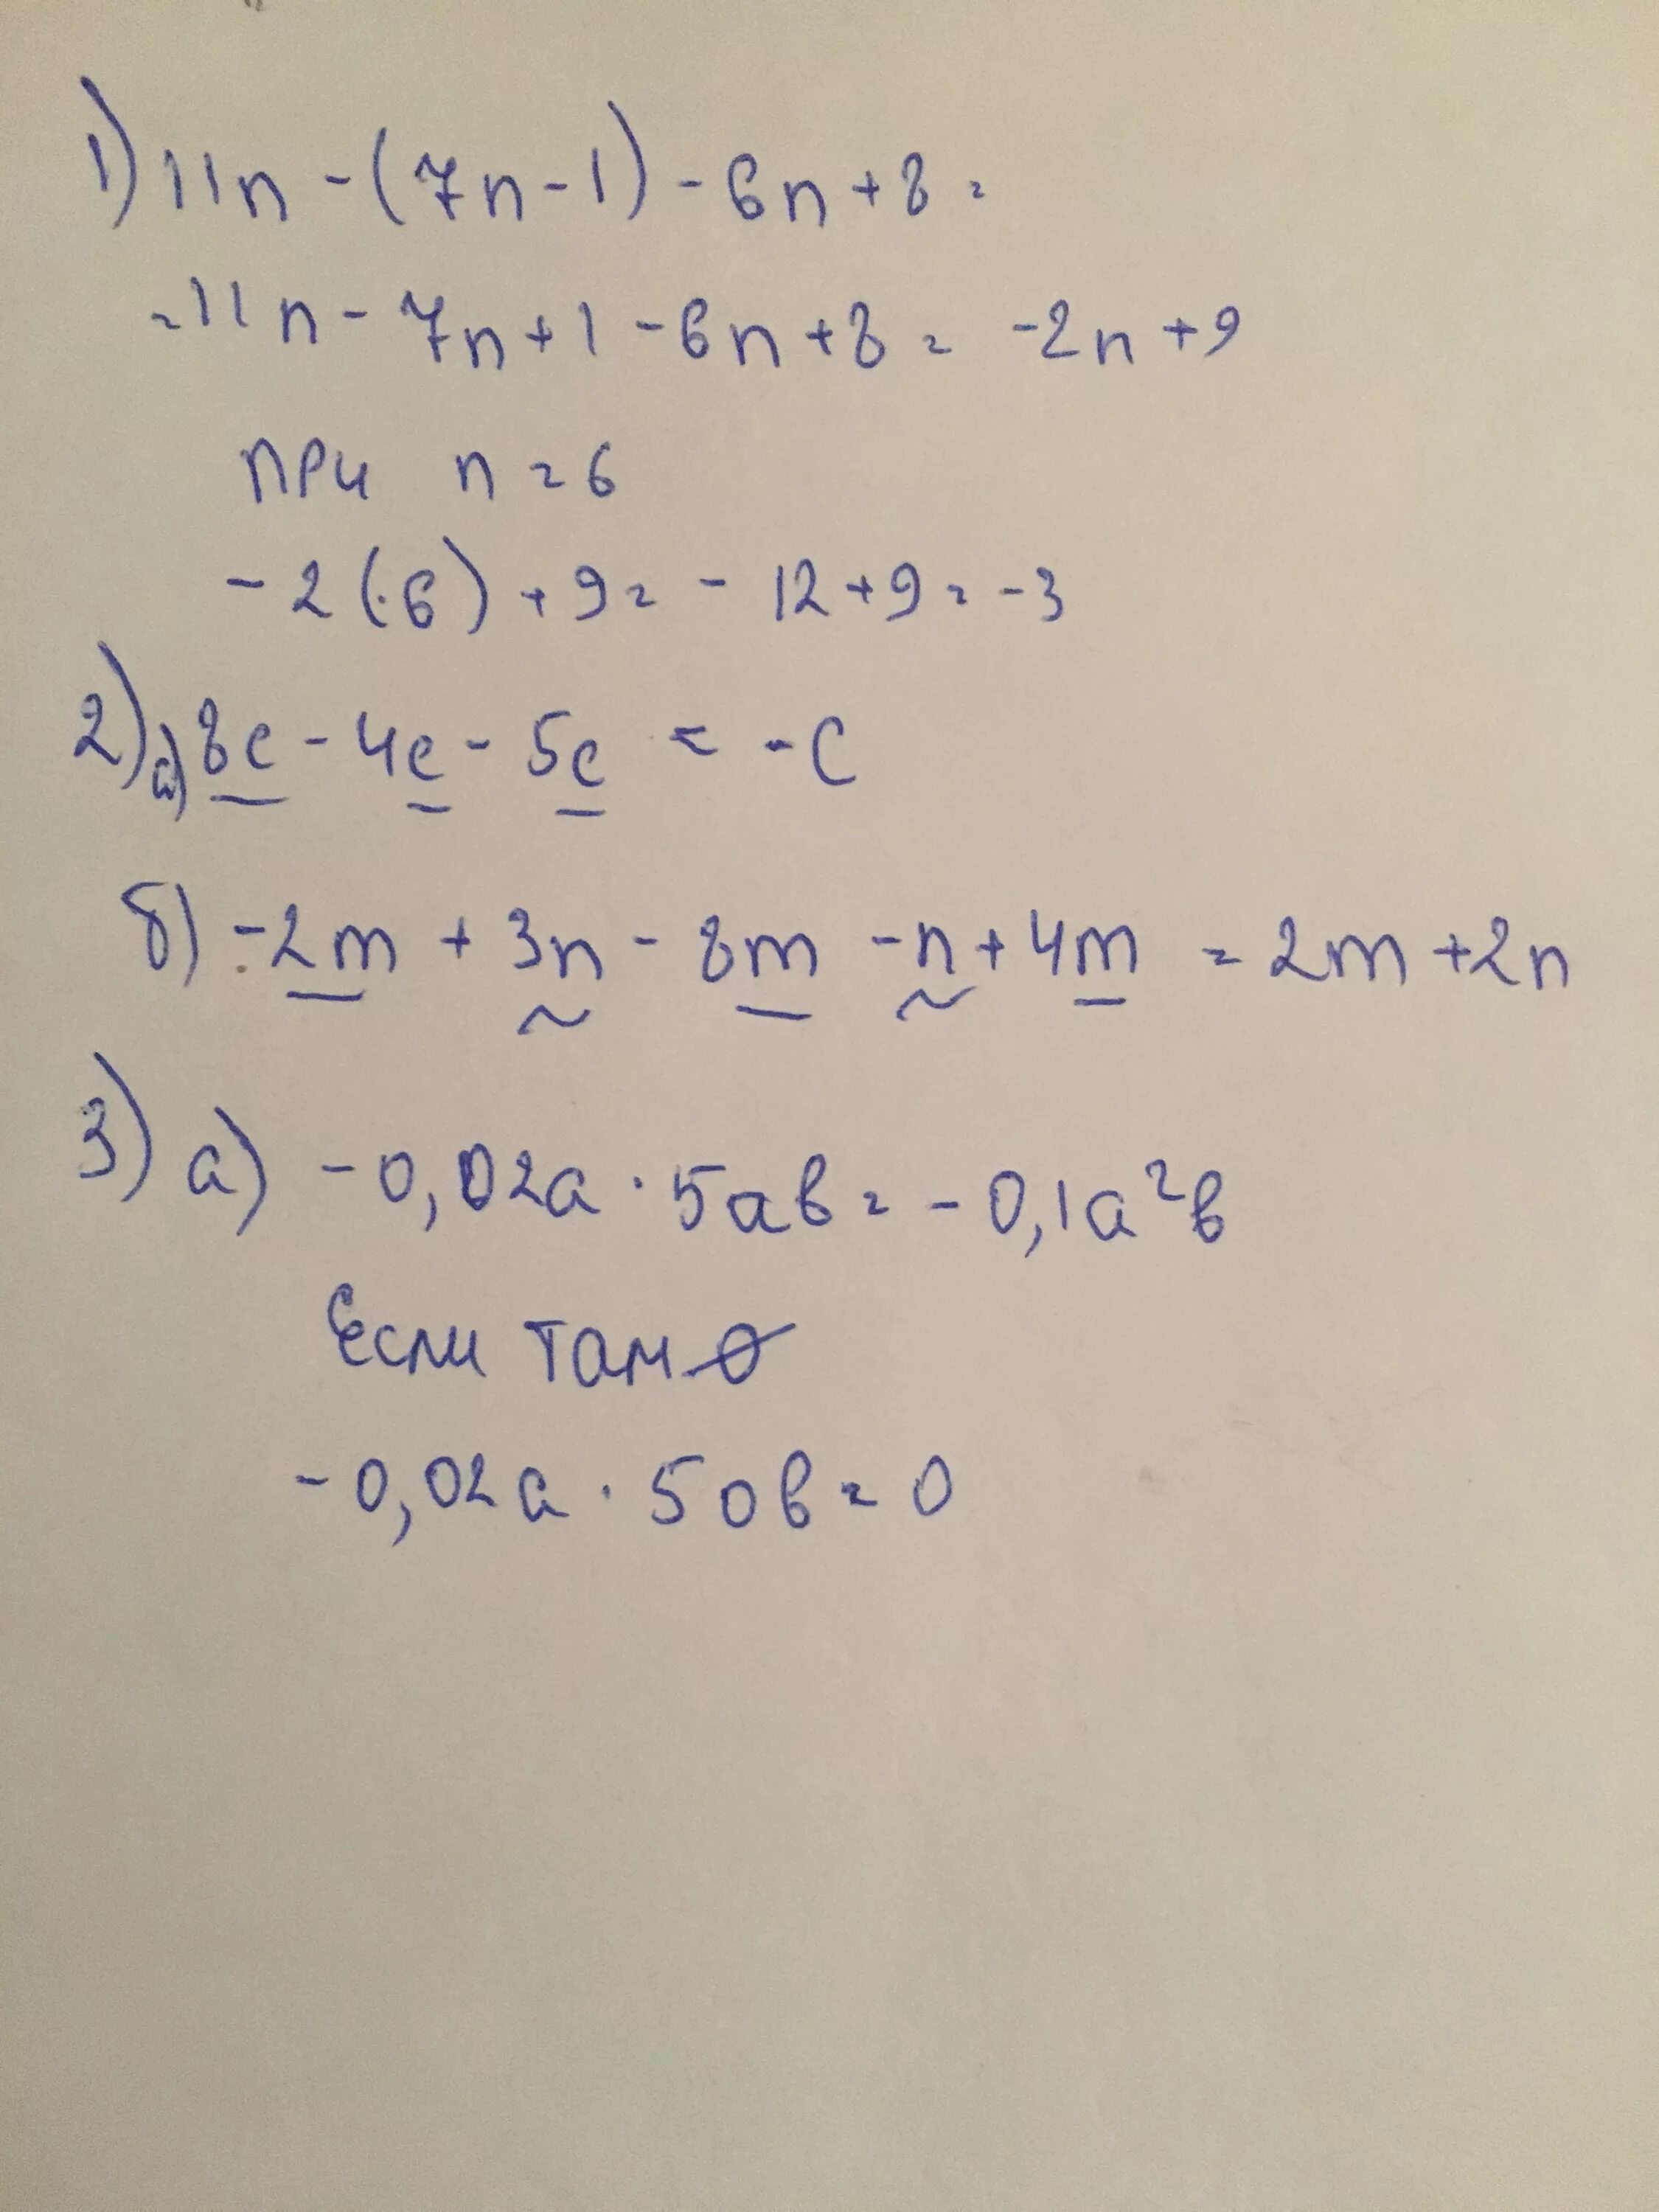 1) 11n - (7n - 1) - 6n + 8 =
= 11n - 7n + 1 - 6n + 8 = -2n + 9
при n = 6
- 2 (·6) + 9 = - 12 + 9 = -3
2) а) 8c - 4c - 5c = - c
б) -2m + 3n - 8m - n + 4m = 2m + 2n
3) а) -0,02a · 5ab = -0,1a²b
Если там 0
-0,02a · 50b = 0